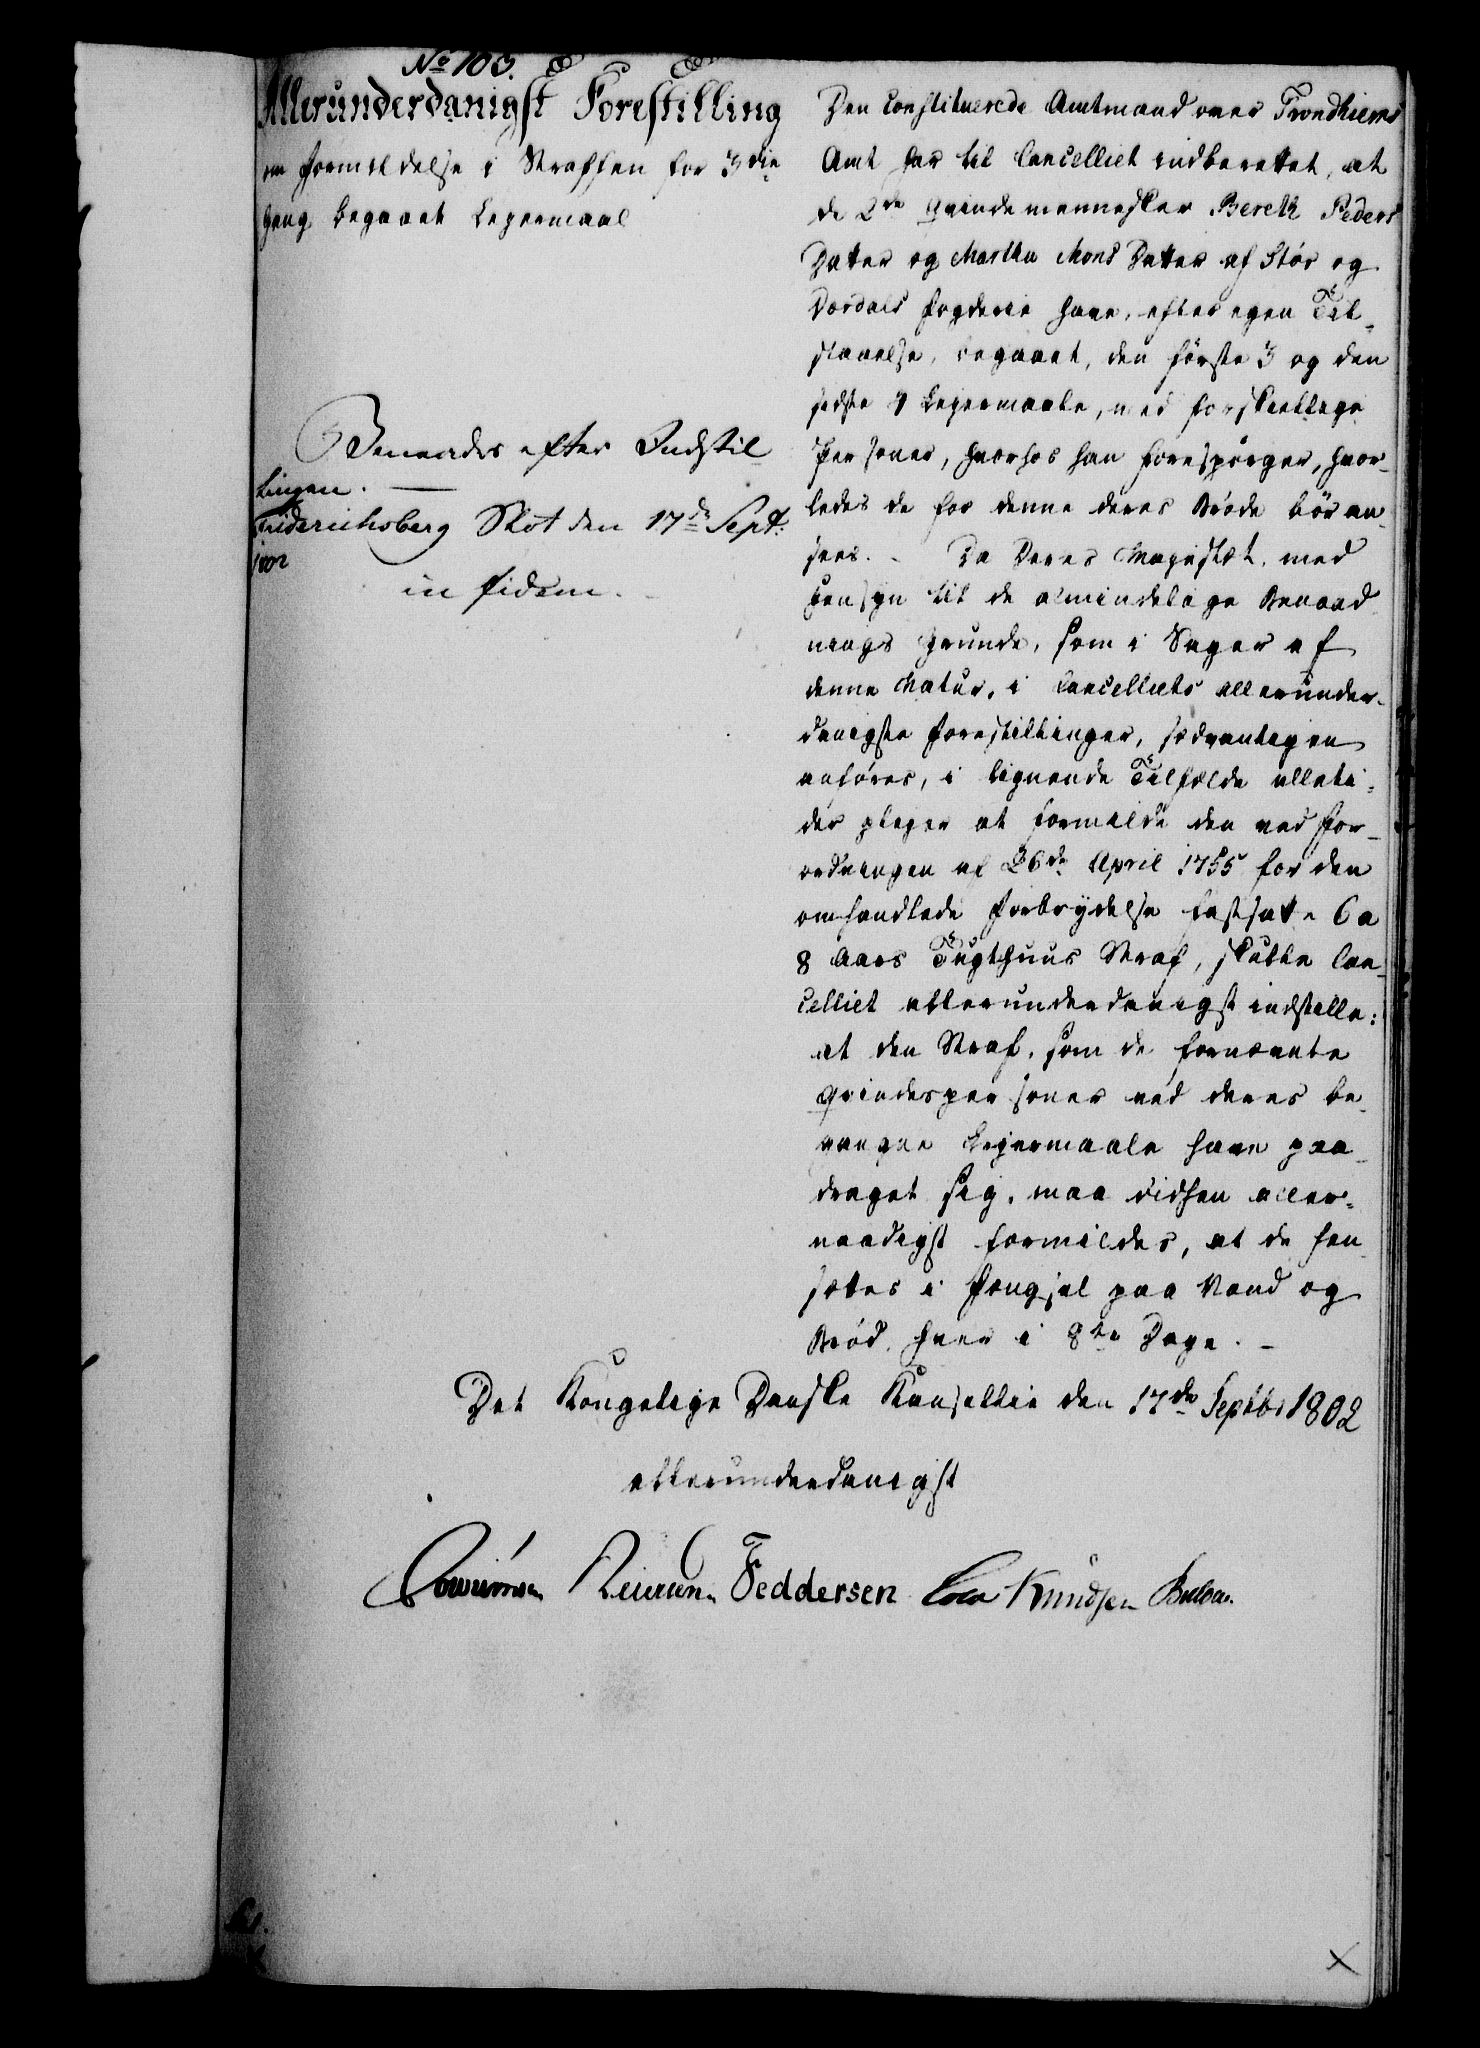 No 103.
Allerunderdanigst Forestilling
om Formildelse i Straffen for 3die
gang begaaet Leiermaal
Benaades efter Indstil
lingen. —
Friderichsberg Slot den 17de Sept:
1802
in fidem.
Den constituerede Amtmand over Trondhiems
Amt har til Cancelliet indberettet, at
de 2de Qvindemennesker Bereth Peders
Datter og Martha Mons Datter af Stör og
Værdals Fogderie have, efter egen Til-
staaelse, begaaet, den förste 3 og den
sidste 4 Leiermaale, med forskiellige
Personer, hvorhos han forespörger, hvor-
ledes de for denne deres Bröde bör an-
sees. - Da Deres Majestæt, med
Hensyn til de almindelige Benaad-
nings Grunde, som i Sager af
denne Natur, i Cancelliets allerunder-
danigste Forestillinger, sædvanligen
anföres, i lignende Tilfælde alleti-
der pleier at formilde den ved For-
ordningen af 26de April 1755 for den
omhandlede Forbrydelse fastsatte 6 a
8 Aars Tugthuus Straf, skulle Can-
celliet allerunderdanigst indstille:
at den Straf, som de fornævnte
Qvindespersoner ved deres be-
gangne Leiermaale have paa-
draget sig, maa vidsen aller-
naadigst formildes, at de hen-
sættes i Fængsel paa Vand og
Bröd, hver i 8te Dage. -
Det Kongelige Danske Kansellie den 17de Septbr 1802
allerunderdanigst
Feddersen Knudsen